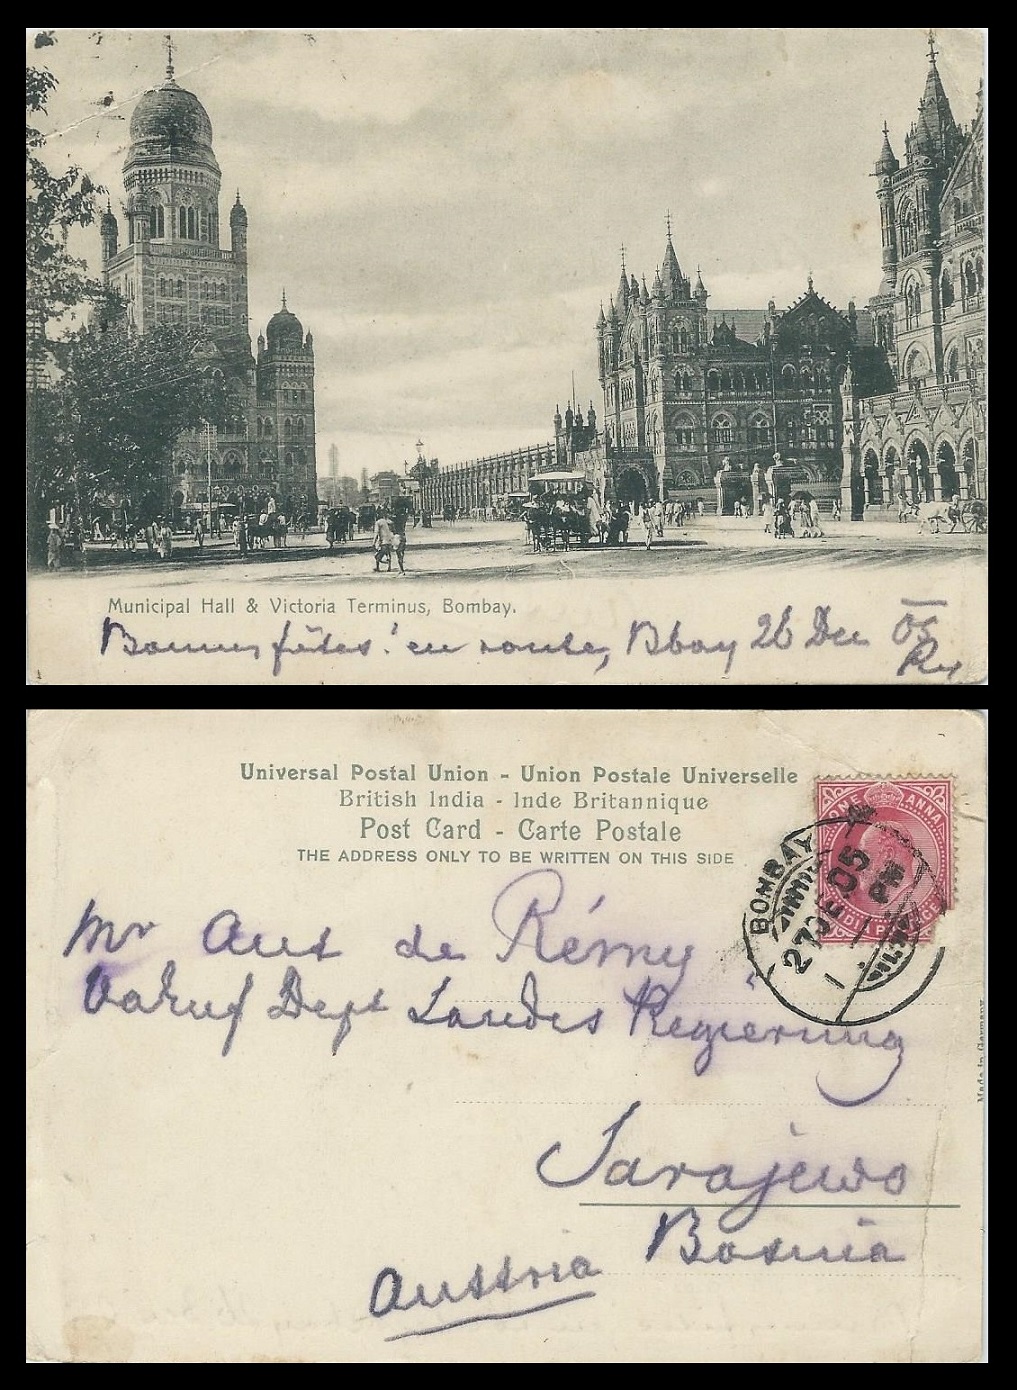 Municipal Hall & Victoria Terminus, Bombay.
Bonnes fêtes! en route, Bbay 26 Dec 05
Universal Postal Union - Union Postale Universelle
British India - Inde Britannique
Post Card - Carte Postale
THE ADDRESS ONLY TO BE WRITTEN ON THIS SIDE
ONE ANNA
INDIA POSTAGE
BOMBAY
27 DE 05
1 PM
Mr Aut de Rémy
Vakuf Dept Landes Regierung
Sarajewo
Bosnia
Austria
Made in Germany